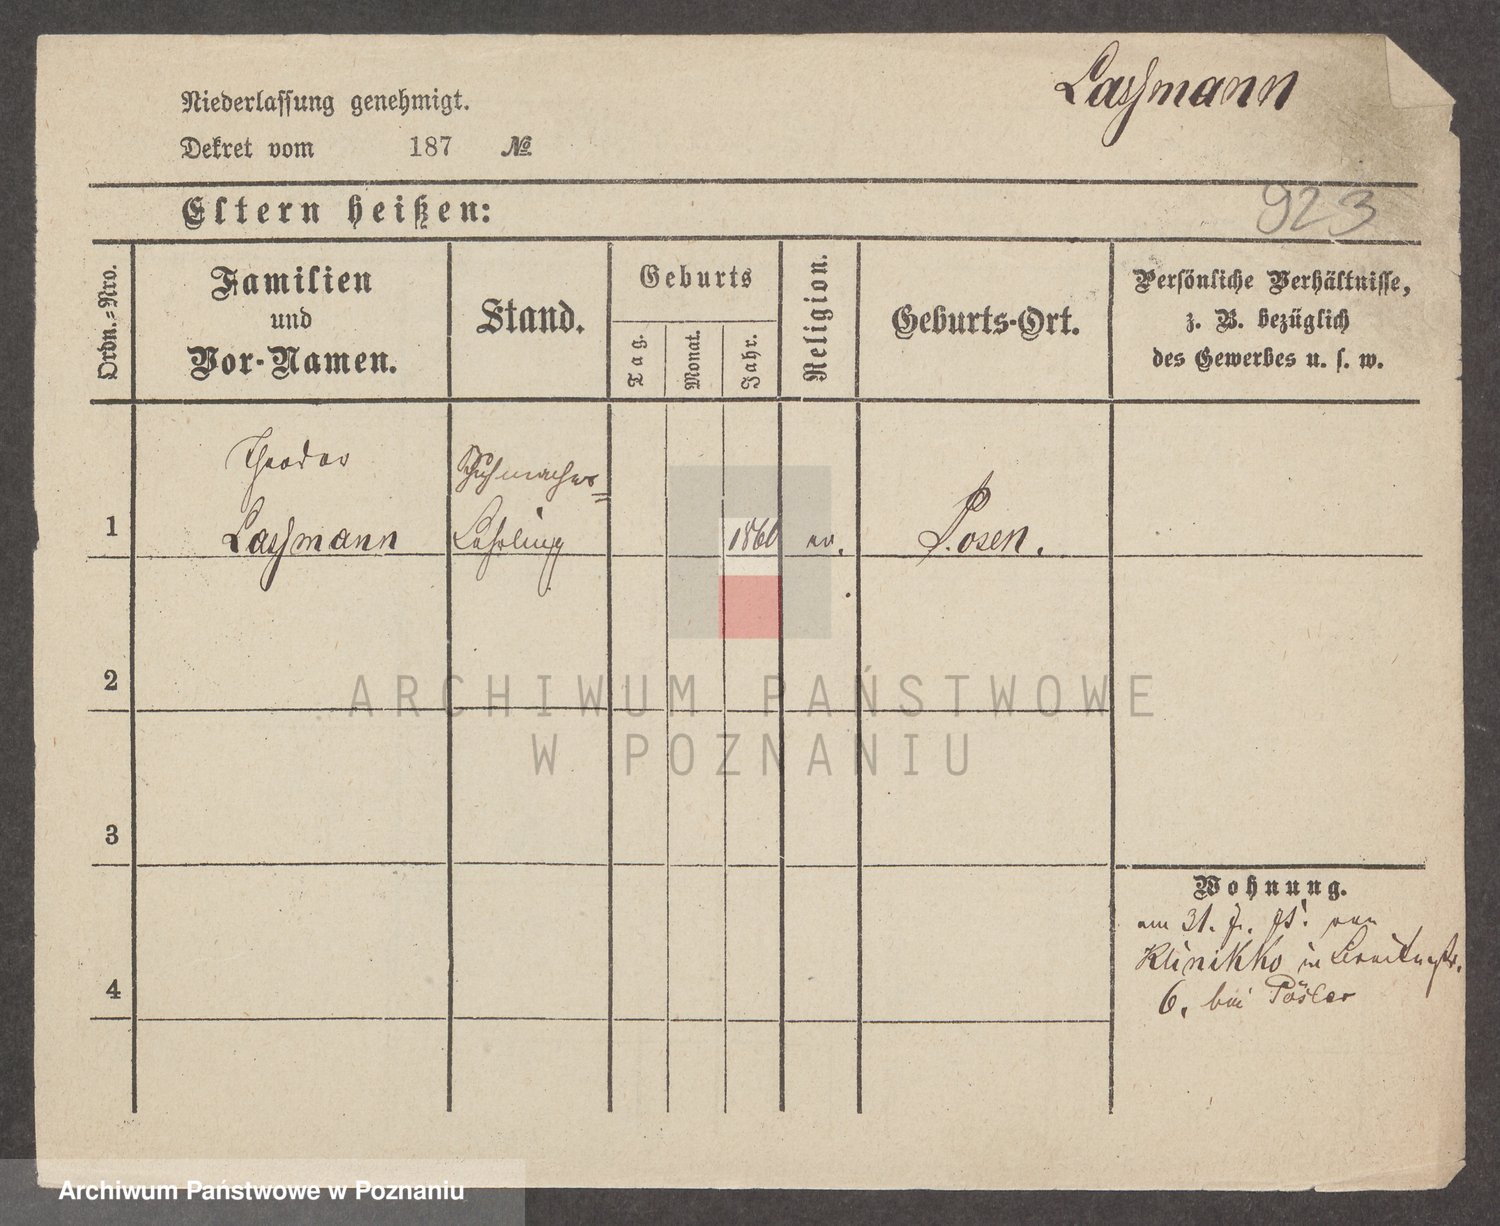 Laßmann
Niederlassung genehmigt.
Dekret vom 187 №
923
Eltern heißen:
Ordn.=Nro.
Familien
und
Vor-Namen.
Stand.
Geburts
Tag.
Monat.
Jahr.
Religion.
Geburts-Ort.
Persönliche Verhältnisse,
z. B. bezüglich
des Gewerbes u. s. w.
1
Theodor
Laßmann
Schuhmacher=
Lehrling
1860
ev.
Posen.
2
ARCHIWUM PAŃSTWOWE
W POZNANIU
3
4
Wohnung.
am 31. von
Klinikko in
6, bei
Archiwum Państwowe w Poznaniu